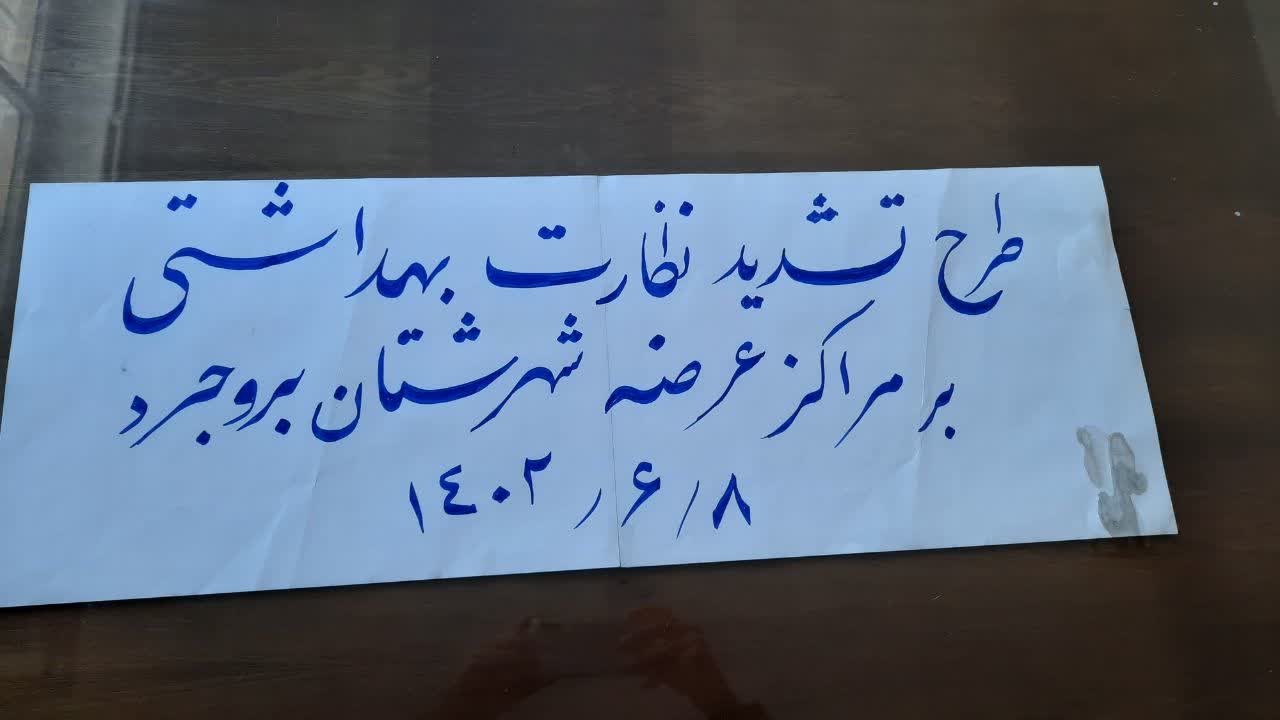 طرح تشدید نظارت بهداشتی
بر مراکز عرضه شهرستان بروجرد
۱٤۰۲/۶/۸